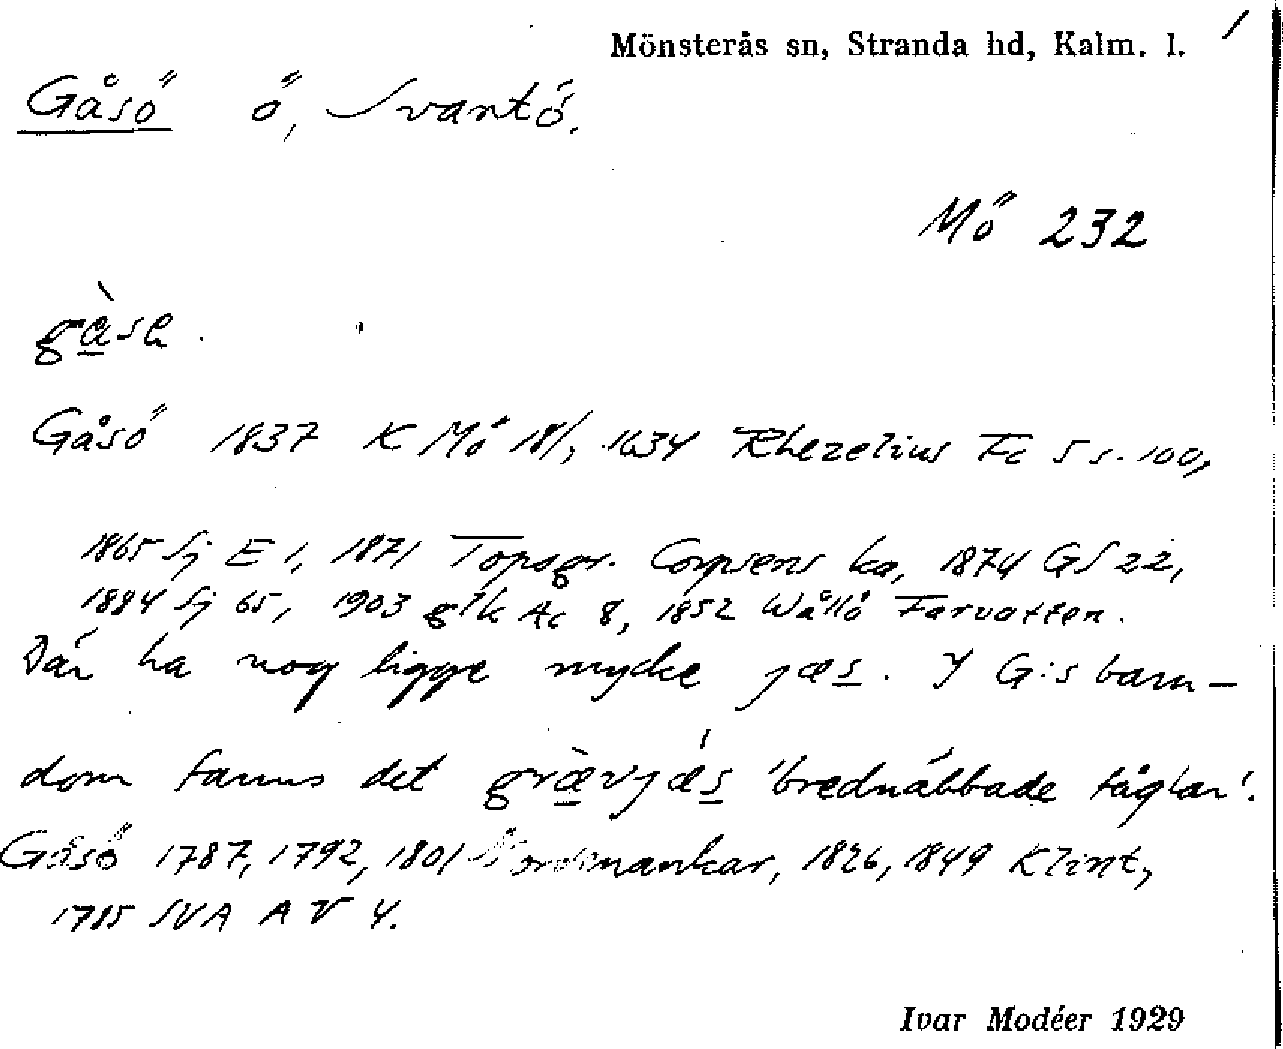 Mönsterås sn, Stranda hd, Kalm. l. /
Gåsö ö, Svartö.
Mö 232
gåsə.
Gåsö 1837 K Mö 18/, 1634 Rhezelius Fc 5 s. 100,
1865 Sj E 1, 1871 Topogr. Corpsens ka, 1874 GS 22,
1884 Sj 65, 1903 glk Ac 8, 1852 Wållö Farvatten.
Där ha nog ligge mycke jæs. I G:s barn-
dom fanns det grævjæs 'brednäbbade fåglar'.
Gåsö 1787, 1792, 1801 Nordenankar, 1826, 1849 Klint,
1785 SVA A V 4.
Ivar Modéer 1929